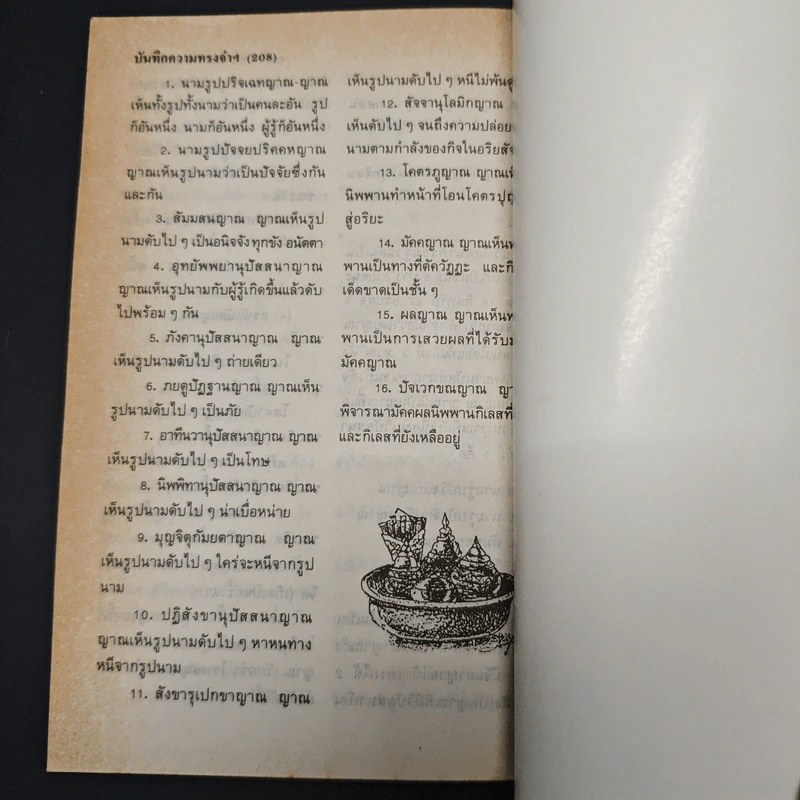 บันทึกความทรงจำฯ (208)
1. นามรูปปริจเฉทญาณ ญาณ
เห็นทั้งรูปทั้งนามว่าเป็นคนละอัน รูป
ก็อันหนึ่ง นามก็อันหนึ่ง ผู้รู้ก็อันหนึ่ง
2. นามรูปปัจจยปริคคหญาณ
ญาณเห็นรูปนามว่าเป็นปัจจัยซึ่งกัน
และกัน
3. สัมมสนญาณ ญาณเห็นรูป
นามดับไป ๆ เป็นอนิจจังทุกขัง อนัตตา
4. อุทยัพพยานุปัสสนาญาณ
ญาณเห็นรูปนามกับผู้รู้เกิดขึ้นแล้วดับ
ไปพร้อม ๆ กัน
5. ภังคานุปัสสนาญาณ ญาณ
เห็นรูปนามดับไป ๆ ถ่ายเดียว
6. ภยตูปัฏฐานญาณ ญาณเห็น
รูปนามดับไป ๆ เป็นภัย
7. อาทีนวานุปัสสนาญาณ ญาณ
เห็นรูปนามดับไป ๆ เป็นโทษ
8. นิพพิทานุปัสสนาญาณ ญาณ
เห็นรูปนามดับไป ๆ น่าเบื่อหน่าย
9. มุญจิตุกัมยตาญาณ ญาณ
เห็นรูปนามดับไป ๆ ใคร่จะหนีจากรูป
นาม
10. ปฏิสังขานุปัสสนาญาณ
ญาณเห็นรูปนามดับไป ๆ หาหนทาง
หนีจากรูปนาม
11. สังขารุเปกขาญาณ ญาณ
เห็นรูปนามดับไป ๆ หนีไม่พ้น
12. สัจจานุโลมิกญาณ
เห็นดับไป ๆ จนถึงความปล่อย
นามตามกำลังของกิจในอริยสัจ
13. โคตรภูญาณ ญาณ
นิพพานทำหน้าที่โอนโคตร
สู่อริยะ
14. มัคคญาณ ญาณเห็น
พานเป็นทางที่ตัดวัฏฏะ และ
เด็ดขาดเป็นชั้น ๆ
15. ผลญาณ ญาณเห็น
พานเป็นการเสวยผลที่ได้รับ
มัคคญาณ
16. ปัจเวกขณญาณ
พิจารณามัคคผลนิพพานกิเลสที่
และกิเลสที่ยังเหลืออยู่